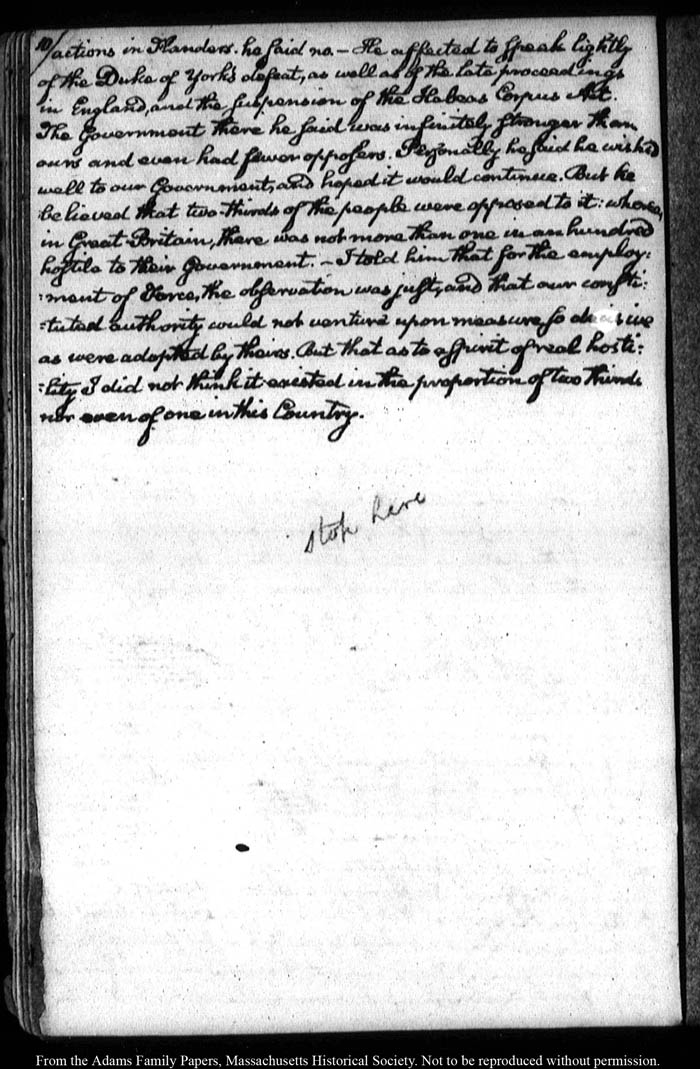 10/
actions in Flanders. he said no. — He affected to speak lightly
of the Duke of York's defeat, as well as of the late proceedings
in England, and the suspension of the Habeas Corpus Act.
The Government there he said was infinitely stronger than
ours and even had fewer opposers. Personally he said he wished
well to our Government, and hoped it would continue. But he
believed that two-thirds of the people were opposed to it: whereas,
in Great-Britain, there was not more than one in an hundred
hostile to their Government. — I told him that for the employ:
:ment of Force, the observation was just, and that our consti:
:tuted authority would not venture upon measures so decisive
as were adopted by theirs. But that as to a spirit of real hosti:
:lity I did not think it existed in the proportion of two thirds
nor even of one in this Country.
Stop here
From the Adams Family Papers, Massachusetts Historical Society. Not to be reproduced without permission.